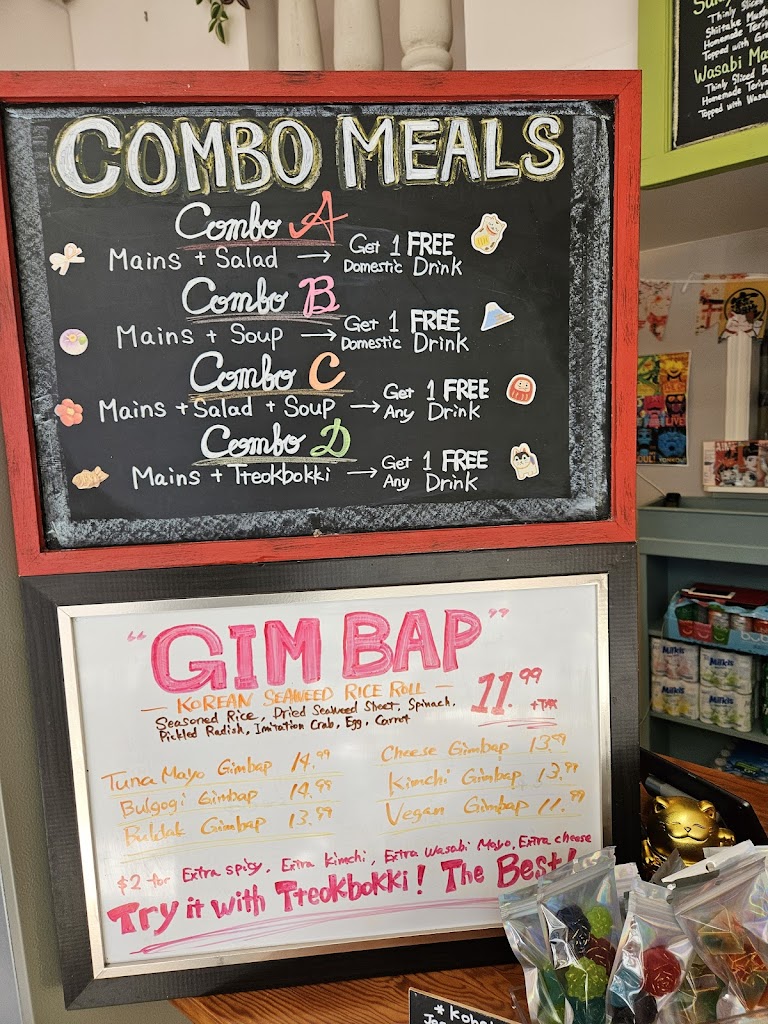 COMBO MEALS
Combo A
Mains + Salad → Get 1 FREE
Domestic Drink
Combo B
Mains + Soup → Get 1 FREE
Domestic Drink
Combo C
Mains + Salad + Soup → Get 1 FREE
Any Drink
Combo D
Mains + Tteokbokki → Get 1 FREE
Any Drink
"GIM BAP"
— KOREAN SEAWEED RICE ROLL —
11.99 +TAX
Seasoned Rice, Dried Seaweed Sheet, Spinach,
Pickled Radish, Imitation Crab, Egg, Carrot
Tuna Mayo Gimbap 14.99
Bulgogi Gimbap 14.99
Buldak Gimbap 13.99
Cheese Gimbap 13.99
Kimchi Gimbap 13.99
Vegan Gimbap 11.99
$2 for Extra spicy, Extra kimchi, Extra Wasabi Mayo, Extra cheese
Try it with Tteokbokki! The Best!
Thinly Slice
Shiitake Mush
Homemade Teriy
Topped with Gre
Wasabi Ma
Thinly Sliced B
Homemade Teriya
Topped with Wasab
Milkis
Milkis
Milkis
Milkis